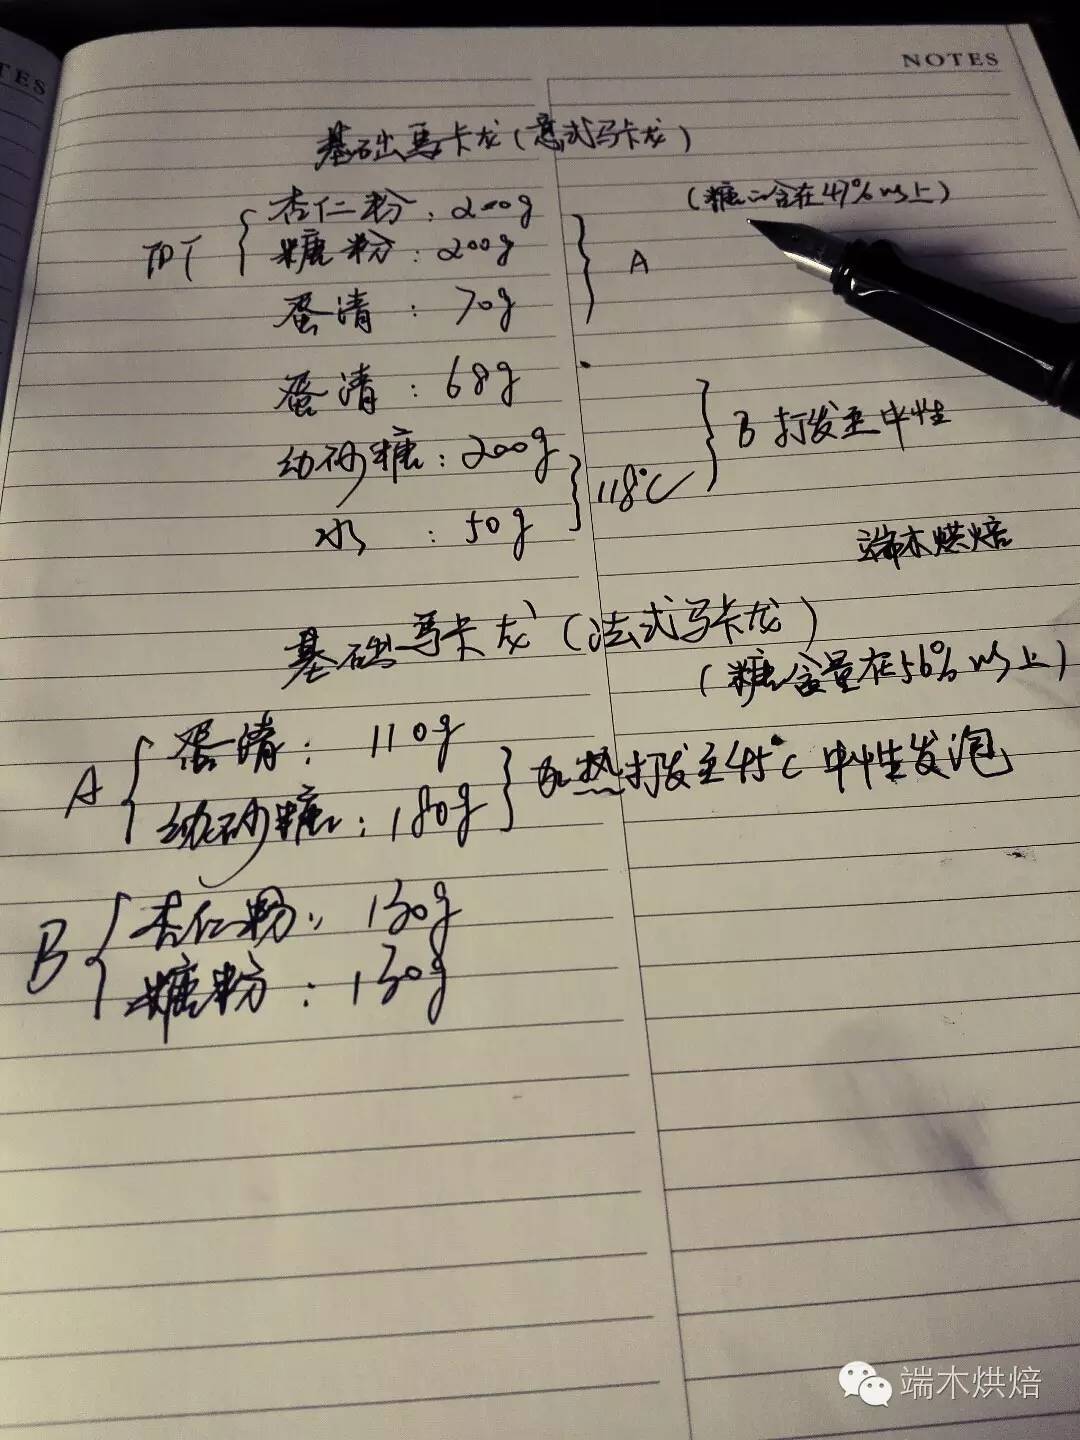 TES
NOTES
基础马卡龙（意式马卡龙）
（糖含在47%以上）
TPT
杏仁粉：200g
糖粉：200g
A
蛋清：70g
蛋清：68g
B 打发至中性
幼砂糖：200g
118℃
水：50g
端木烘焙
基础马卡龙（法式马卡龙）
（糖含量在56%以上）
A
蛋清：110g
幼砂糖：180g
加热打发至45℃ 中性发泡
B
杏仁粉：130g
糖粉：130g
端木烘焙